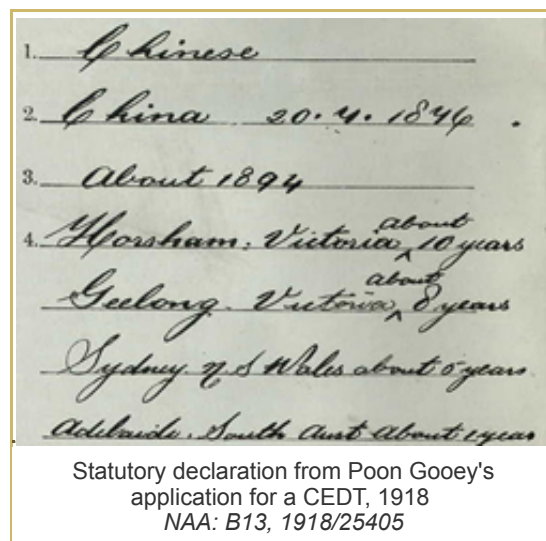 1. Chinese
2. China 20.4.1846.
3. About 1894
about
4. Horsham, Victoria ^ 10 years
about
Geelong. Victoria ^ 8 years
Sydney N S Wales about 5 years
Adelaide. South Aust about 1 year
Statutory declaration from Poon Gooey's
application for a CEDT, 1918
NAA: B13, 1918/25405